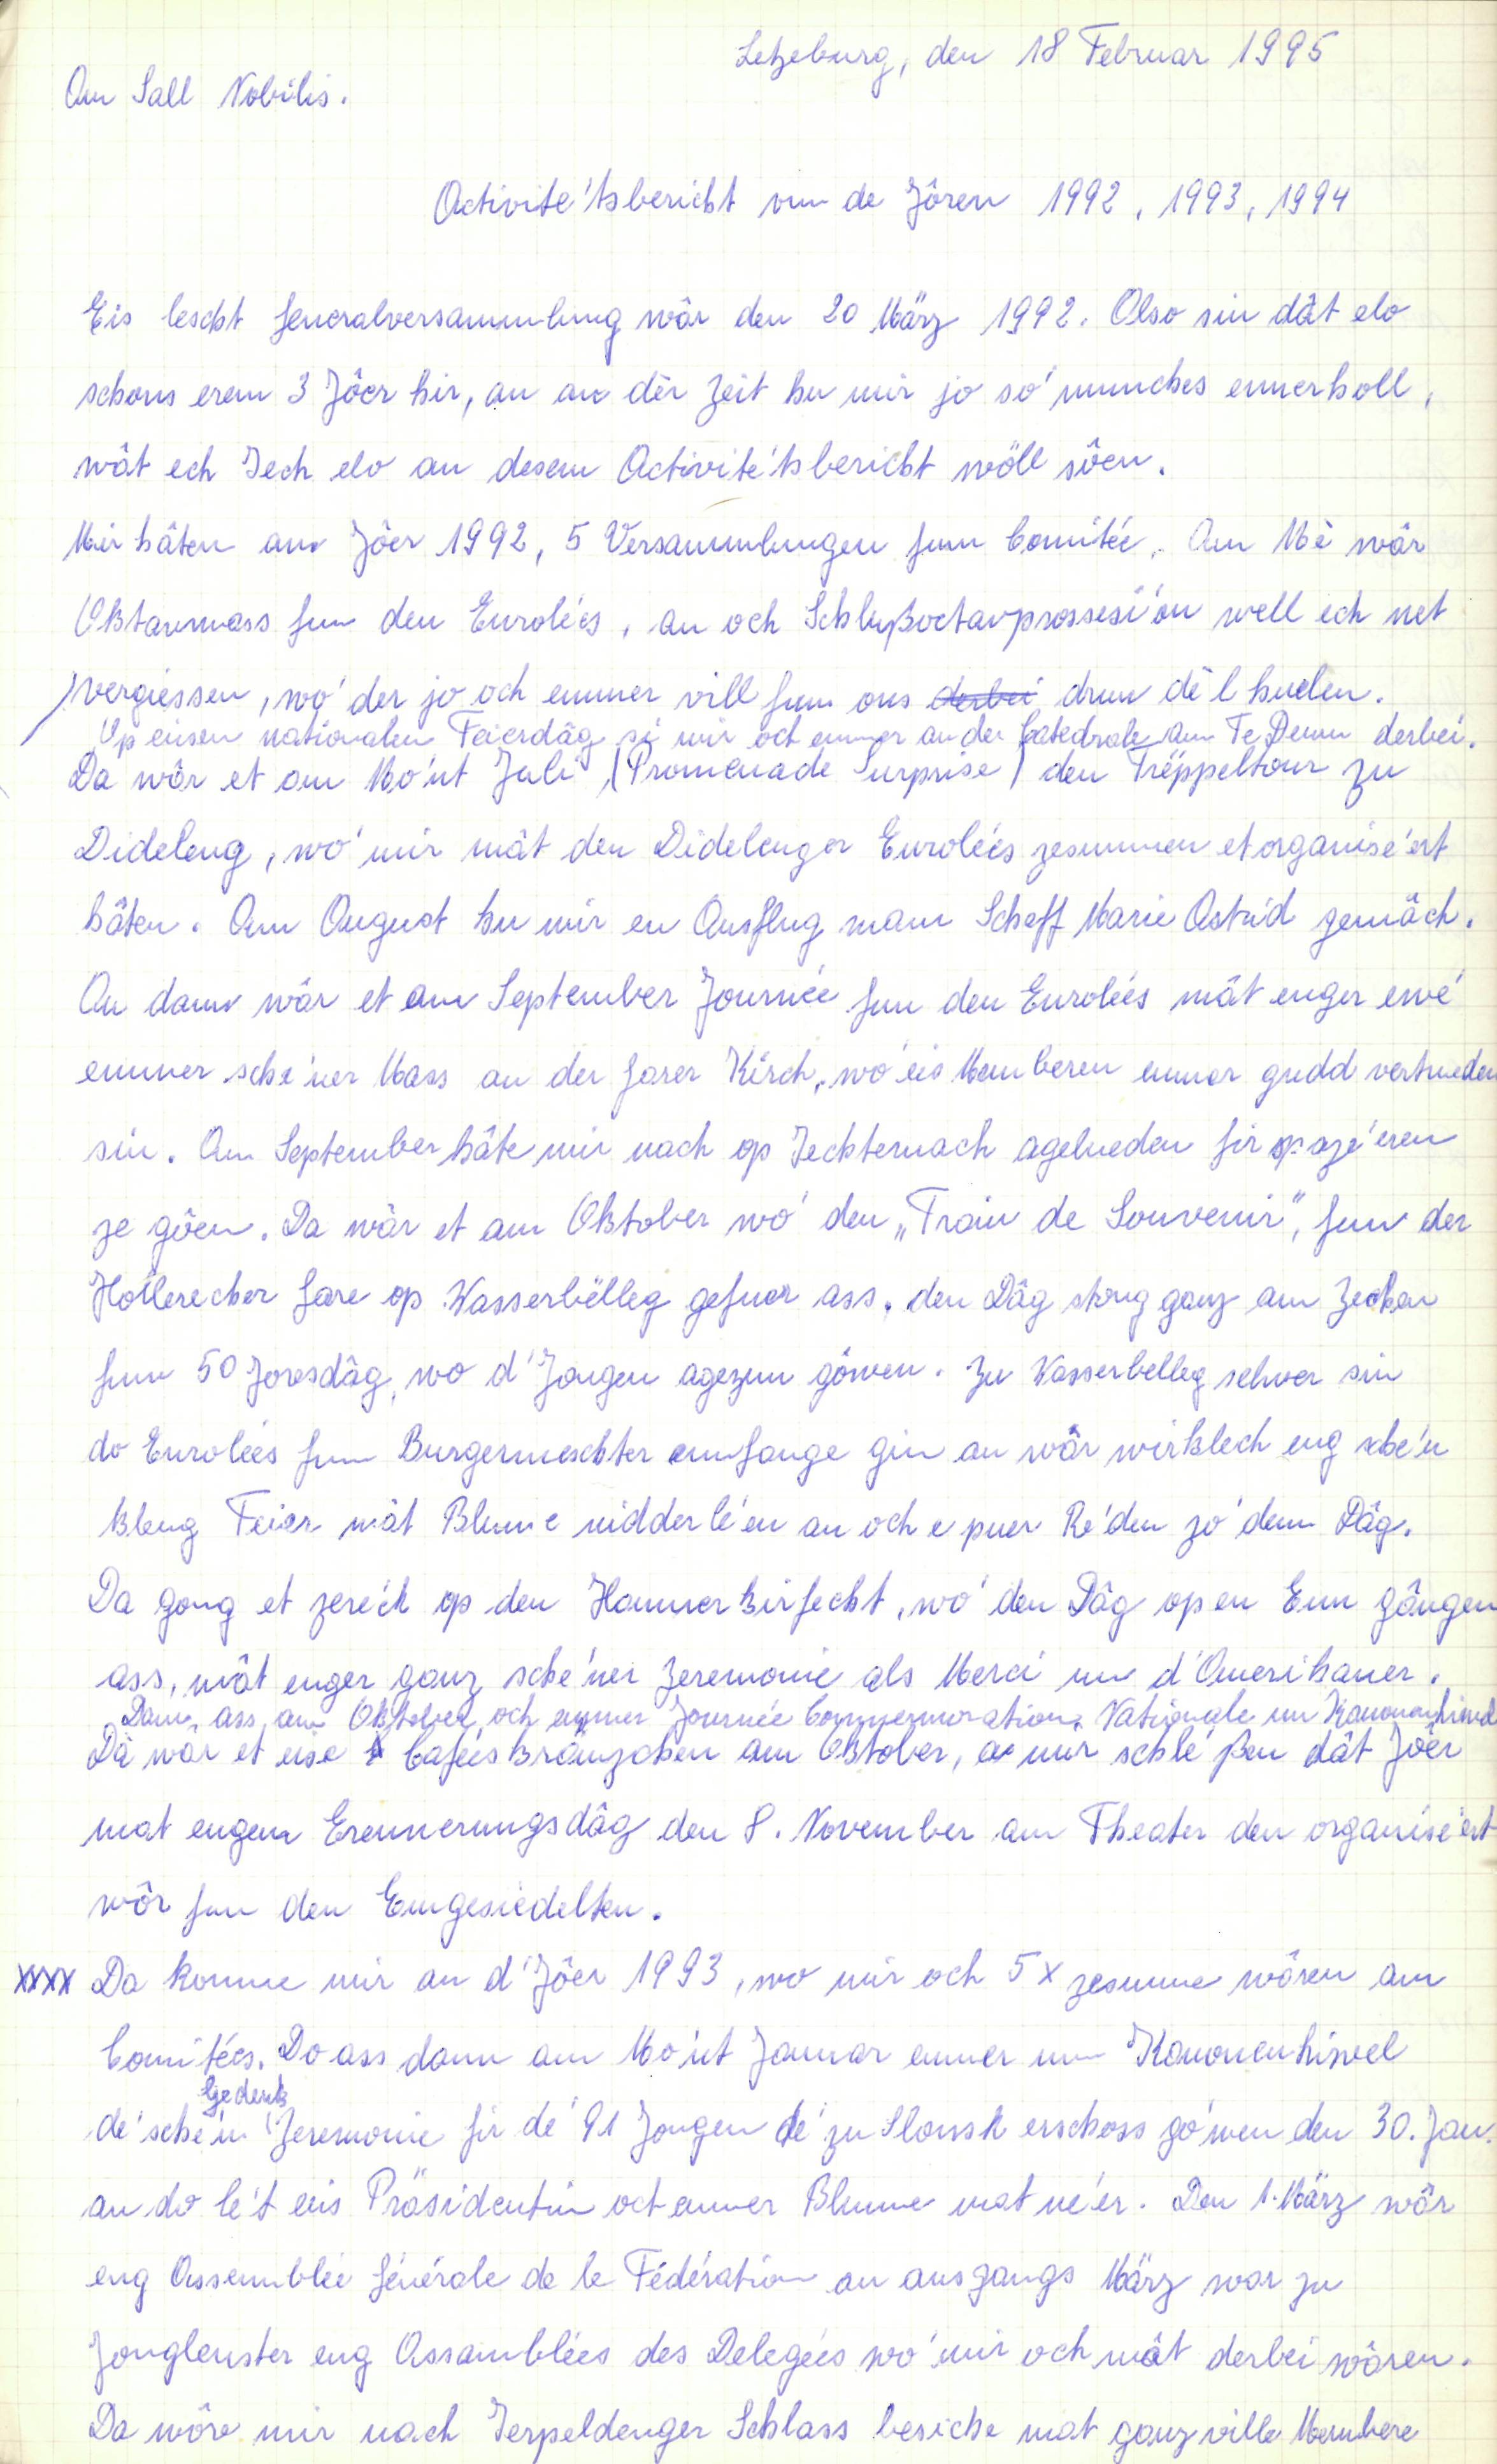 Letzeburg, den 18 Februar 1995
Am Sall Nobilis.
Activite'tsbericht vun de Jôren 1992, 1993, 1994
Eis lescht Generalversammlung wâr den 20 März 1992. Also sin dât elo
schons erem 3 Jôer hir, an an dèr Zeit hu mir jo so' munches ennerholl,
wât ech Iech elo an desem Activite'tsbericht wöll sôen.
Mir hâten am Jôer 1992, 5 Versammlungen fum Comitée. Am Mè wâr
Oktavmass fun den Eurolées, an och Schlußoctavprossesi'on well ech net
vergiessen, wo' der jo och emmer vill fun ons derbei drun dèl huelen.
Op eisen nationalen Feierdâg si mir och emmer an der Catedrale am Te Deum derbei.
Da wâr et am Mo'nt Juli (Promenade Surprise) den Trëppeltour zu
Dideleng, wo' mir mât den Didelenger Eurolées zesummen et organise'ert
hâten. Am August hu mir en Ausflug mam Scheff Marie Astrid gemâch.
An dann wâr et am September Journée fun den Eurolées mât enger ewe'
emmer sche'ner Mass an der Garer Kirch, wo' eis Memberen emmer gudd vertrueden
sin. Am September hâte mir nach op Iechternach agelueden fir spaze'eren
ze gôen. Da wâr et am Oktober wo' den „Train de Souvenir", fun der
Hollerecher Gare op Wasserbëlleg gefuer ass, den Dâg stong ganz am Zechen
fum 50 Joresdâg, wo d'Jongen agezun gówen. Zu Wasserbelleg selwer sin
do Eurolées fum Burgermeschter emfange gin an wâr wirklech eng sche'n
kleng Feier mât Blume nidderle'en an och e puer Re'den zo' dem Dâg.
Da gong et zereck op den Hammer Kirfecht, wo' den Dâg op en Enn gângen
ass, mât enger ganz sche'ner Zeremonie als Merci un d'Amerikaner.
Dann ass am Oktober och emmer Journée Commermoration Nationale um Kanounenhiwel
Da wâr et eise Caféeskränzchen am Oktober, a mir schle'ßen dât Jôer
mat engem Erennerungsdâg den 8. November am Theater den organise'ert
wôr fun den Emgesiedelten.
xxxx Da komme mir an d'Jôer 1993, wo mir och 5 x zesumme wôren am
Comitées. Do ass dann am Mo'nt Januar emmer um Kanounenhiwel
Gedenk
de' sche'n Zeremonie fir de' 91 Jongen de' zu Slonsk erschoss go'wen den 30. Jan.
an do le't eis Präsidentin och emmer Blumme mat ne'er. Den 1. März wôr
eng Assemblée Générale de la Fédération an ausgangs März war zu
Jonglenster eng Assamblées des Delegées wo' mir och mât derbei wôren.
Da wôre mir nach Ierpeldenger Schlass besiche mat ganz ville Membere